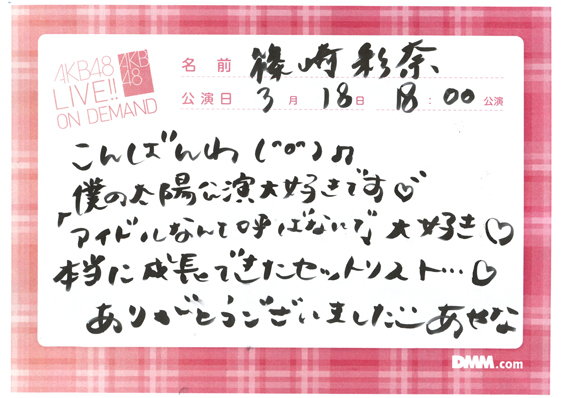 AKB48
LIVE!!
ON DEMAND
AKB
48
名前 篠崎彩奈
公演日 3月 18日 18:00 公演
こんばんわ (^o^)♫
僕の太陽公演大好きです♡
「アイドルなんて呼ばないで」大好き♡
本当に成長できたセットリスト…♡
ありがとうございました あやな
DMM.com